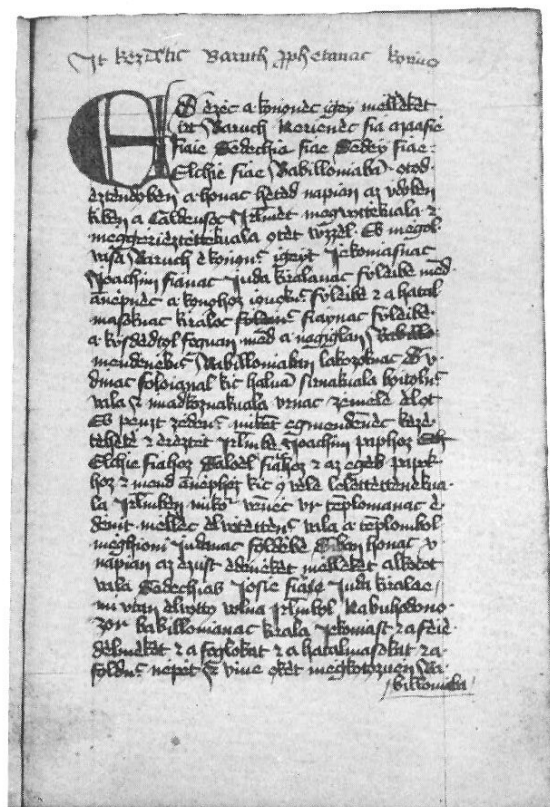 It kezdetic Baruch pphetanac koniuo
Es ezec a kononec igey melleket
irt Baruch Nerienec fia amasie
fiaie Sedechia fiae Sedey fiae
Elchie fiae Babilloniaban otod
eztendoben a honac heted napian az vdoben
kiben a Caldeusoc Jrlmet megvottekuala ⁊
meggeriezttettekuala otet tvzzel. Es megol
uasa Baruch e konuonc igeyt Jekoniasnac
Joachim fianac Juda kiralanac fyleibe mend
anepnec a konohoz iouoknc fyleibe ⁊ a hatal
masoknac kiraloc foldenc fiaynac fyleibe
a kysdedtol foguan mend a nagiglan Babillo
mendenebc Babilloniaban lakozoknac Es v
dinac foloianal kic haluan sirnakuala boitolnc
vala ⁊ imadkoznakuala vrnac zemele elot
Es penzt zedenc mikent egmendenec keze
tehete ⁊ ereztec Jrlmbe Joachim paphoz
Elchie fiahoz Saloel fiahoz ⁊ az egeb papok
hoz ⁊ mend anephoz kic o vele lelettettenekua
la Jrlmben mikor venec vr templomanac e
denit mellec eluetettenc vala a templombol
meghioni Judanac foldebe Siban honac x
napian az ezust edeneket melleket alkotot
vala Sedechias Josie fiaie Juda kiralae
mi vtan eluotto volna Jrlmbol Nabuhodono
zor babillonianac kirala Jekoniast ⁊ a feie
delmeket ⁊ a foglokat ⁊ a hatalmasokat ⁊ a
foldnc nepet ⁊ viue oket megkotozuen Ba
billoniaba